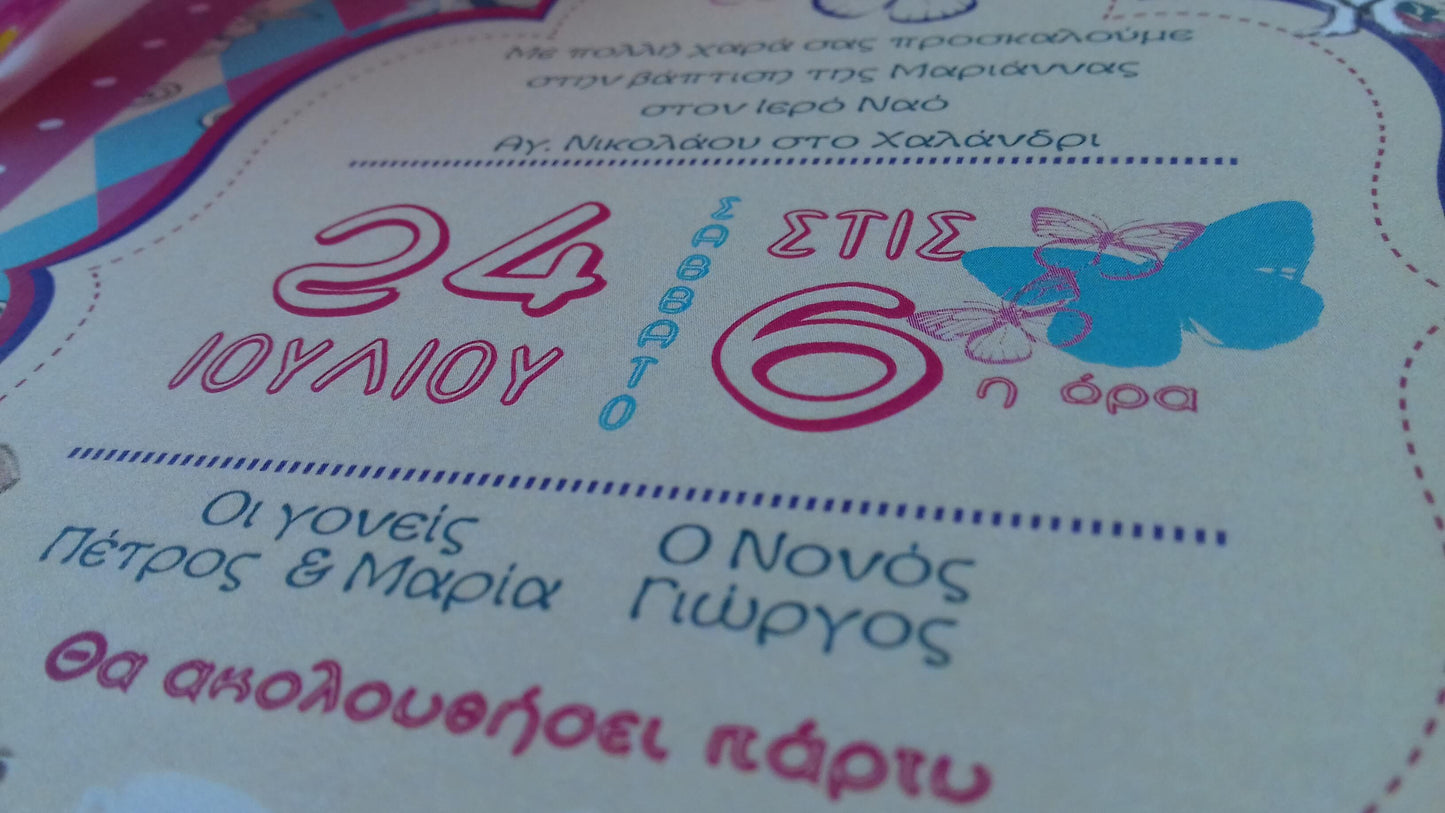 Με πολλή χαρά σας προσκαλούμε
στην βάπτιση της Μαριάννας
στον Ιερό Ναό
Αγ. Νικολάου στο Χαλάνδρι
24
ΙΟΥΛΙΟΥ
ΣΑΒΒΑΤΟ
ΣΤΙΣ
6
η όρα
Οι γονείς
Πέτρος & Μαρία
Ο Νονός
Γιώργος
Θα ακολουθήσει πάρτυ